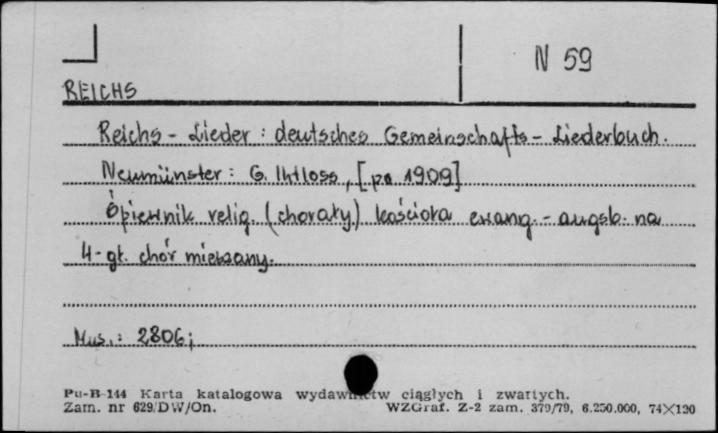 N 59
REICHS
Reichs - Lieder : deutsches Gemeinschafts - Liederbuch.
Neumünster : G. Ihtloss, [po 1909]
Śpiewnik relig. (chorały) kościoła ewang. - augsb. na
4 - gł. chór mieszany.
Mus. : 2806;
Pu-B-144 Karta katalogowa wydawnictw ciągłych i zwartych.
Zam. nr 629/DW/On. WZGraf. Z-2 zam. 379/79, 6.250.000, 74×120